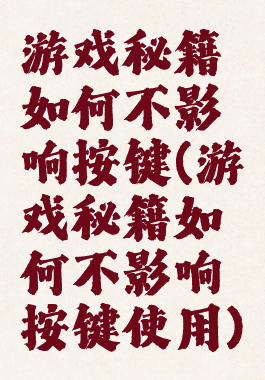 游戏秘籍
如何不影
响按键(游
戏秘籍如
何不影响
按键使用)